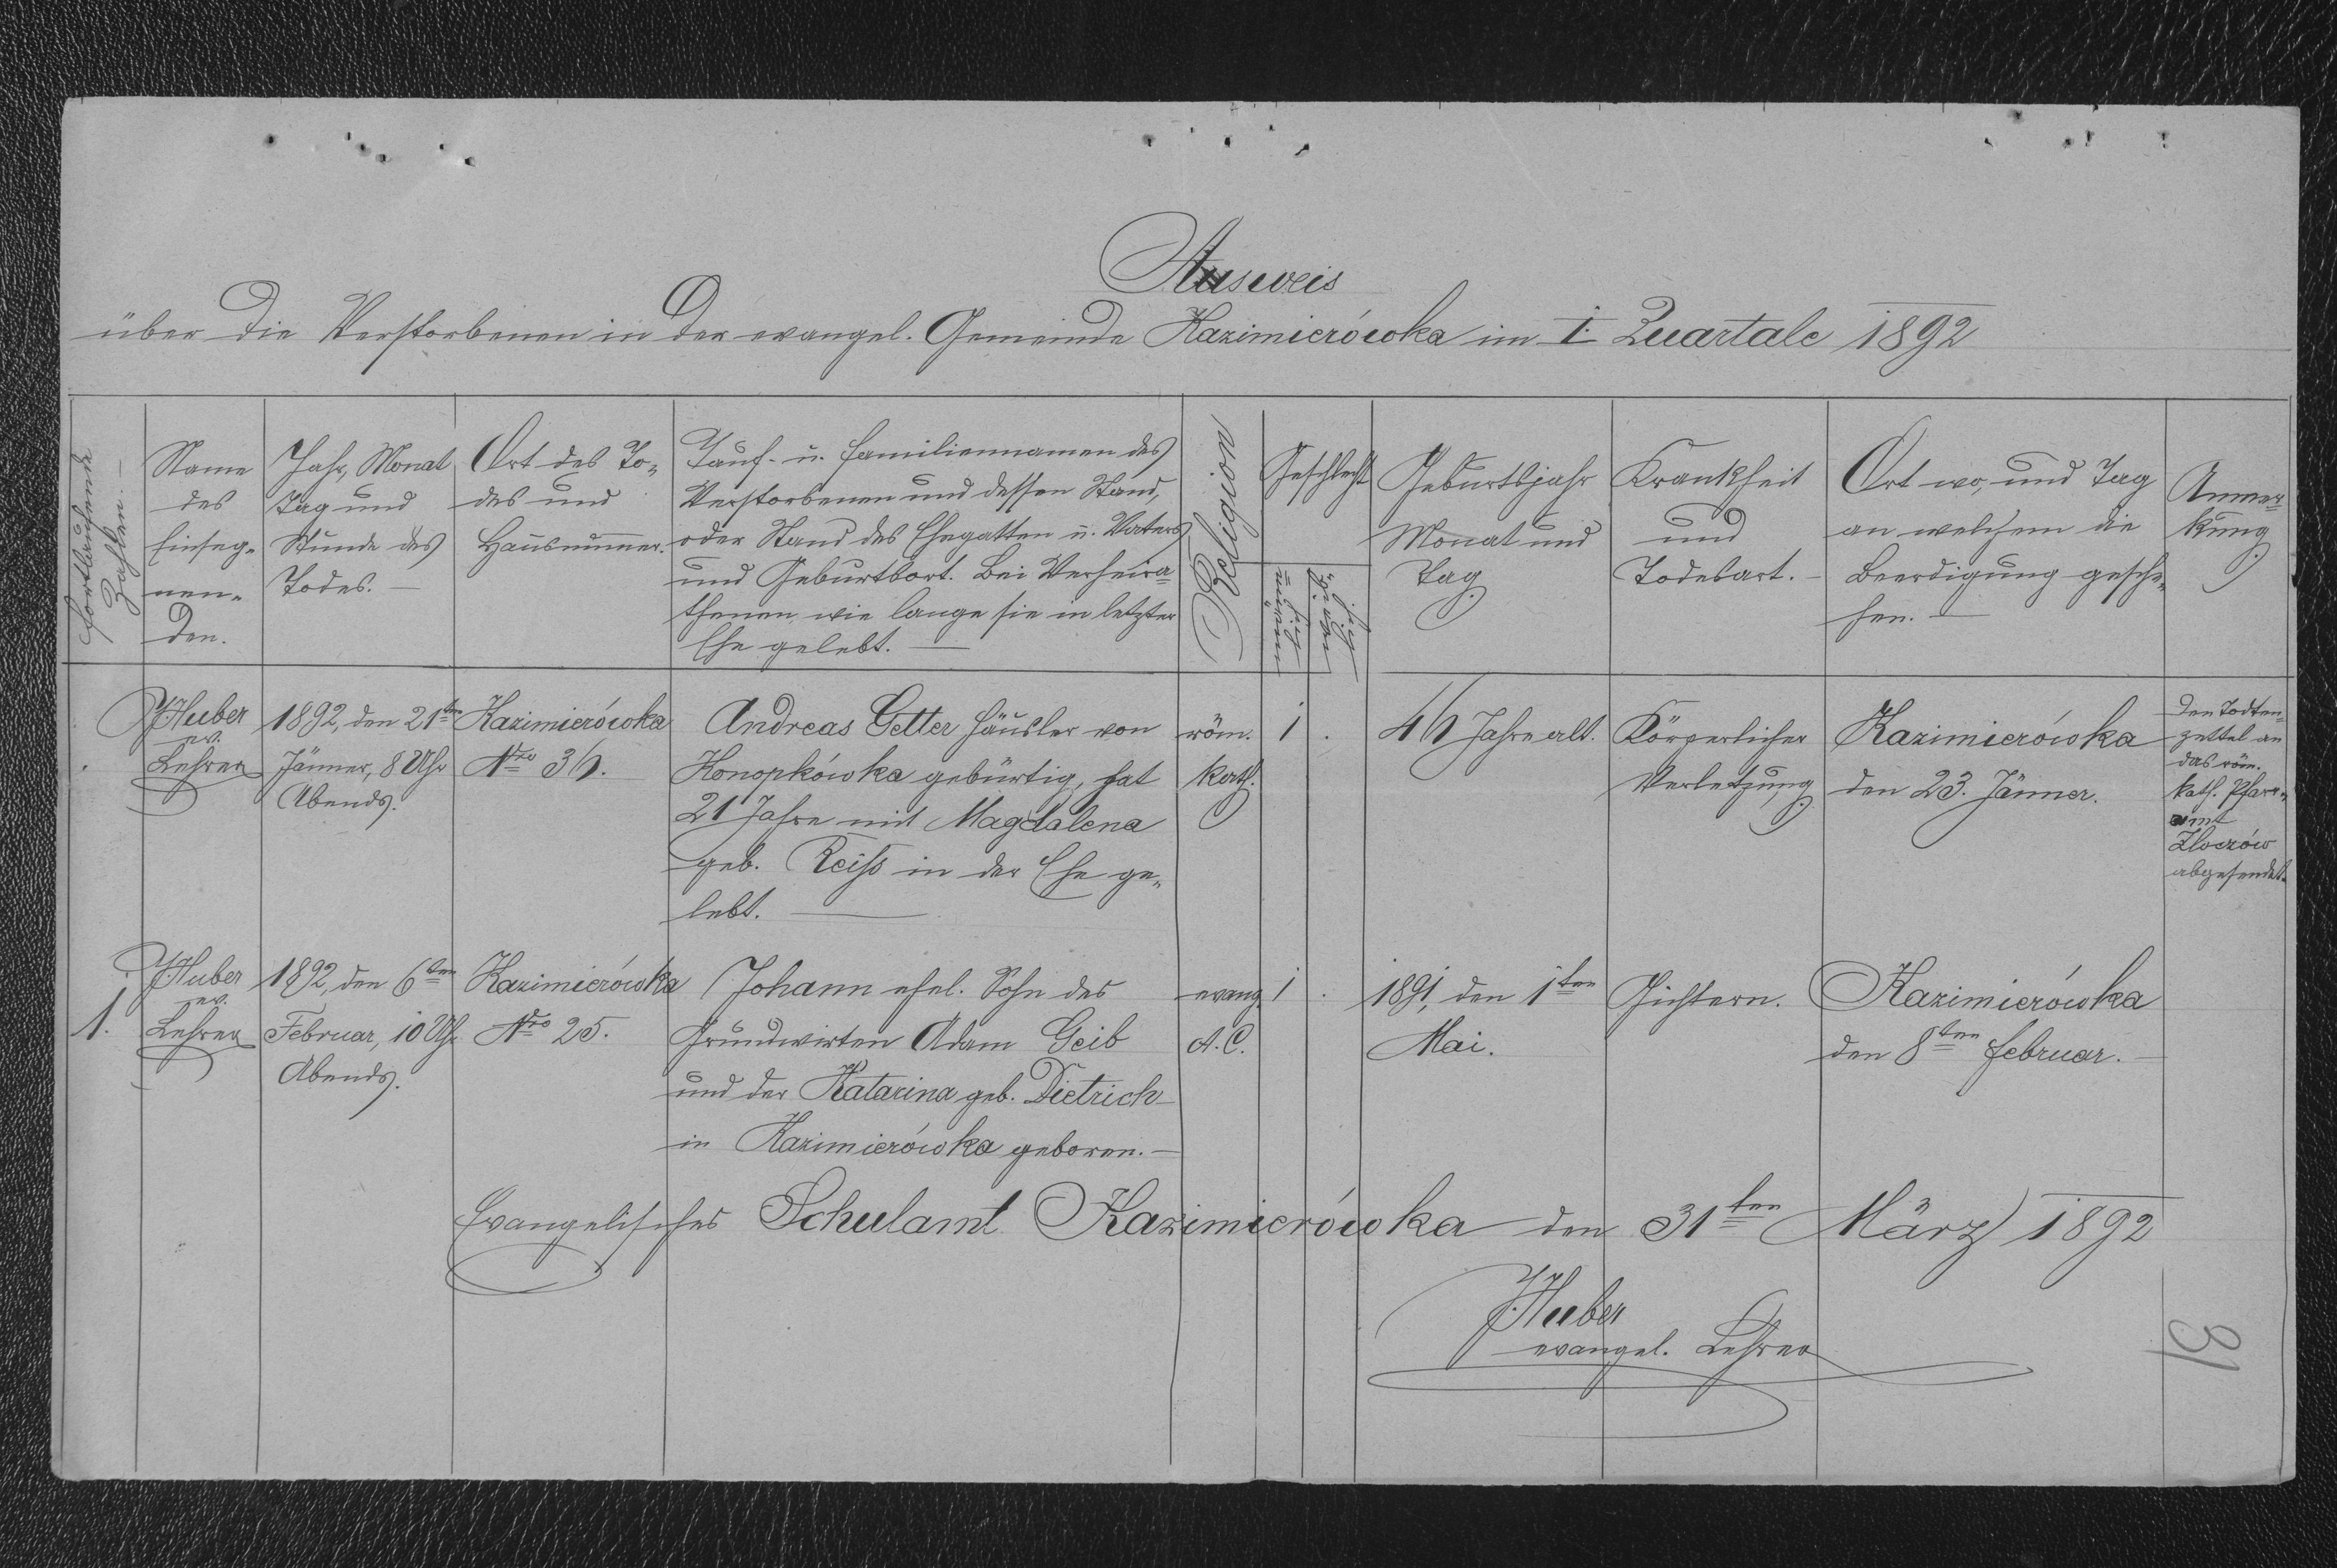 Ausweis
über die Verstorbenen in der evangel. Gemeinde Kazimierówka im I. Quartale 1892
Fortlaufende
Zahlen.
Name
des
Einseg-
nen-
den.
Jahr, Monat
Tag und
Stunde des
Todes. —
Ort des To-
des und
Hausnummer.
Tauf- u. Familiennamen des
Verstorbenen und dessen Stand,
oder Stand des Ehegatten u. Vaters
und Geburtsort. Bei Verheira-
thenen wie lange sie in letzter
Ehe gelebt. —
Religion
Geschlecht
Geburtsjahr
Monat und
Tag
Krankheit
und
Todesart. —
Ort wo, und Tag
an welchem die
Beerdigung gesche-
hen. —
Anmer-
kung
J. Huber
ev.
Lehrer
1892, den 21ten
Jänner, 8 Uhr
Abends.
Kazimierówka
Nro 36.
Andreas Getter Häusler von
Konopkówka gebürtig, hat
21 Jahre mit Magdalena
geb. Reiß in der Ehe ge-
lebt. —
röm.
kath.
1 .
46 Jahre alt.
Körperlicher
Verletzung
Kazimierówka
den 23. Jänner.
Den Todten-
zettel an
das röm.
kath. Pfarr-
amt
Zloczów
abgesendet.
1.
J. Huber
ev.
Lehrer
1892, den 6ten
Februar, 10 Uhr
Abends.
Kazimierówka
Nro 25.
Johann ehel. Sohn des
Grundwirten Adam Geib
und der Katarina geb. Dietrich
in Kazimierówka geboren. —
evang.
A. C.
1 .
1891, den 1ten
Mai.
Gichtern.
Kazimierówka
den 8ten Februar. —
Evangelisches Schulamt Kazimierówka den 31ten März 1892
J. Huber
evangel. Lehrer
31